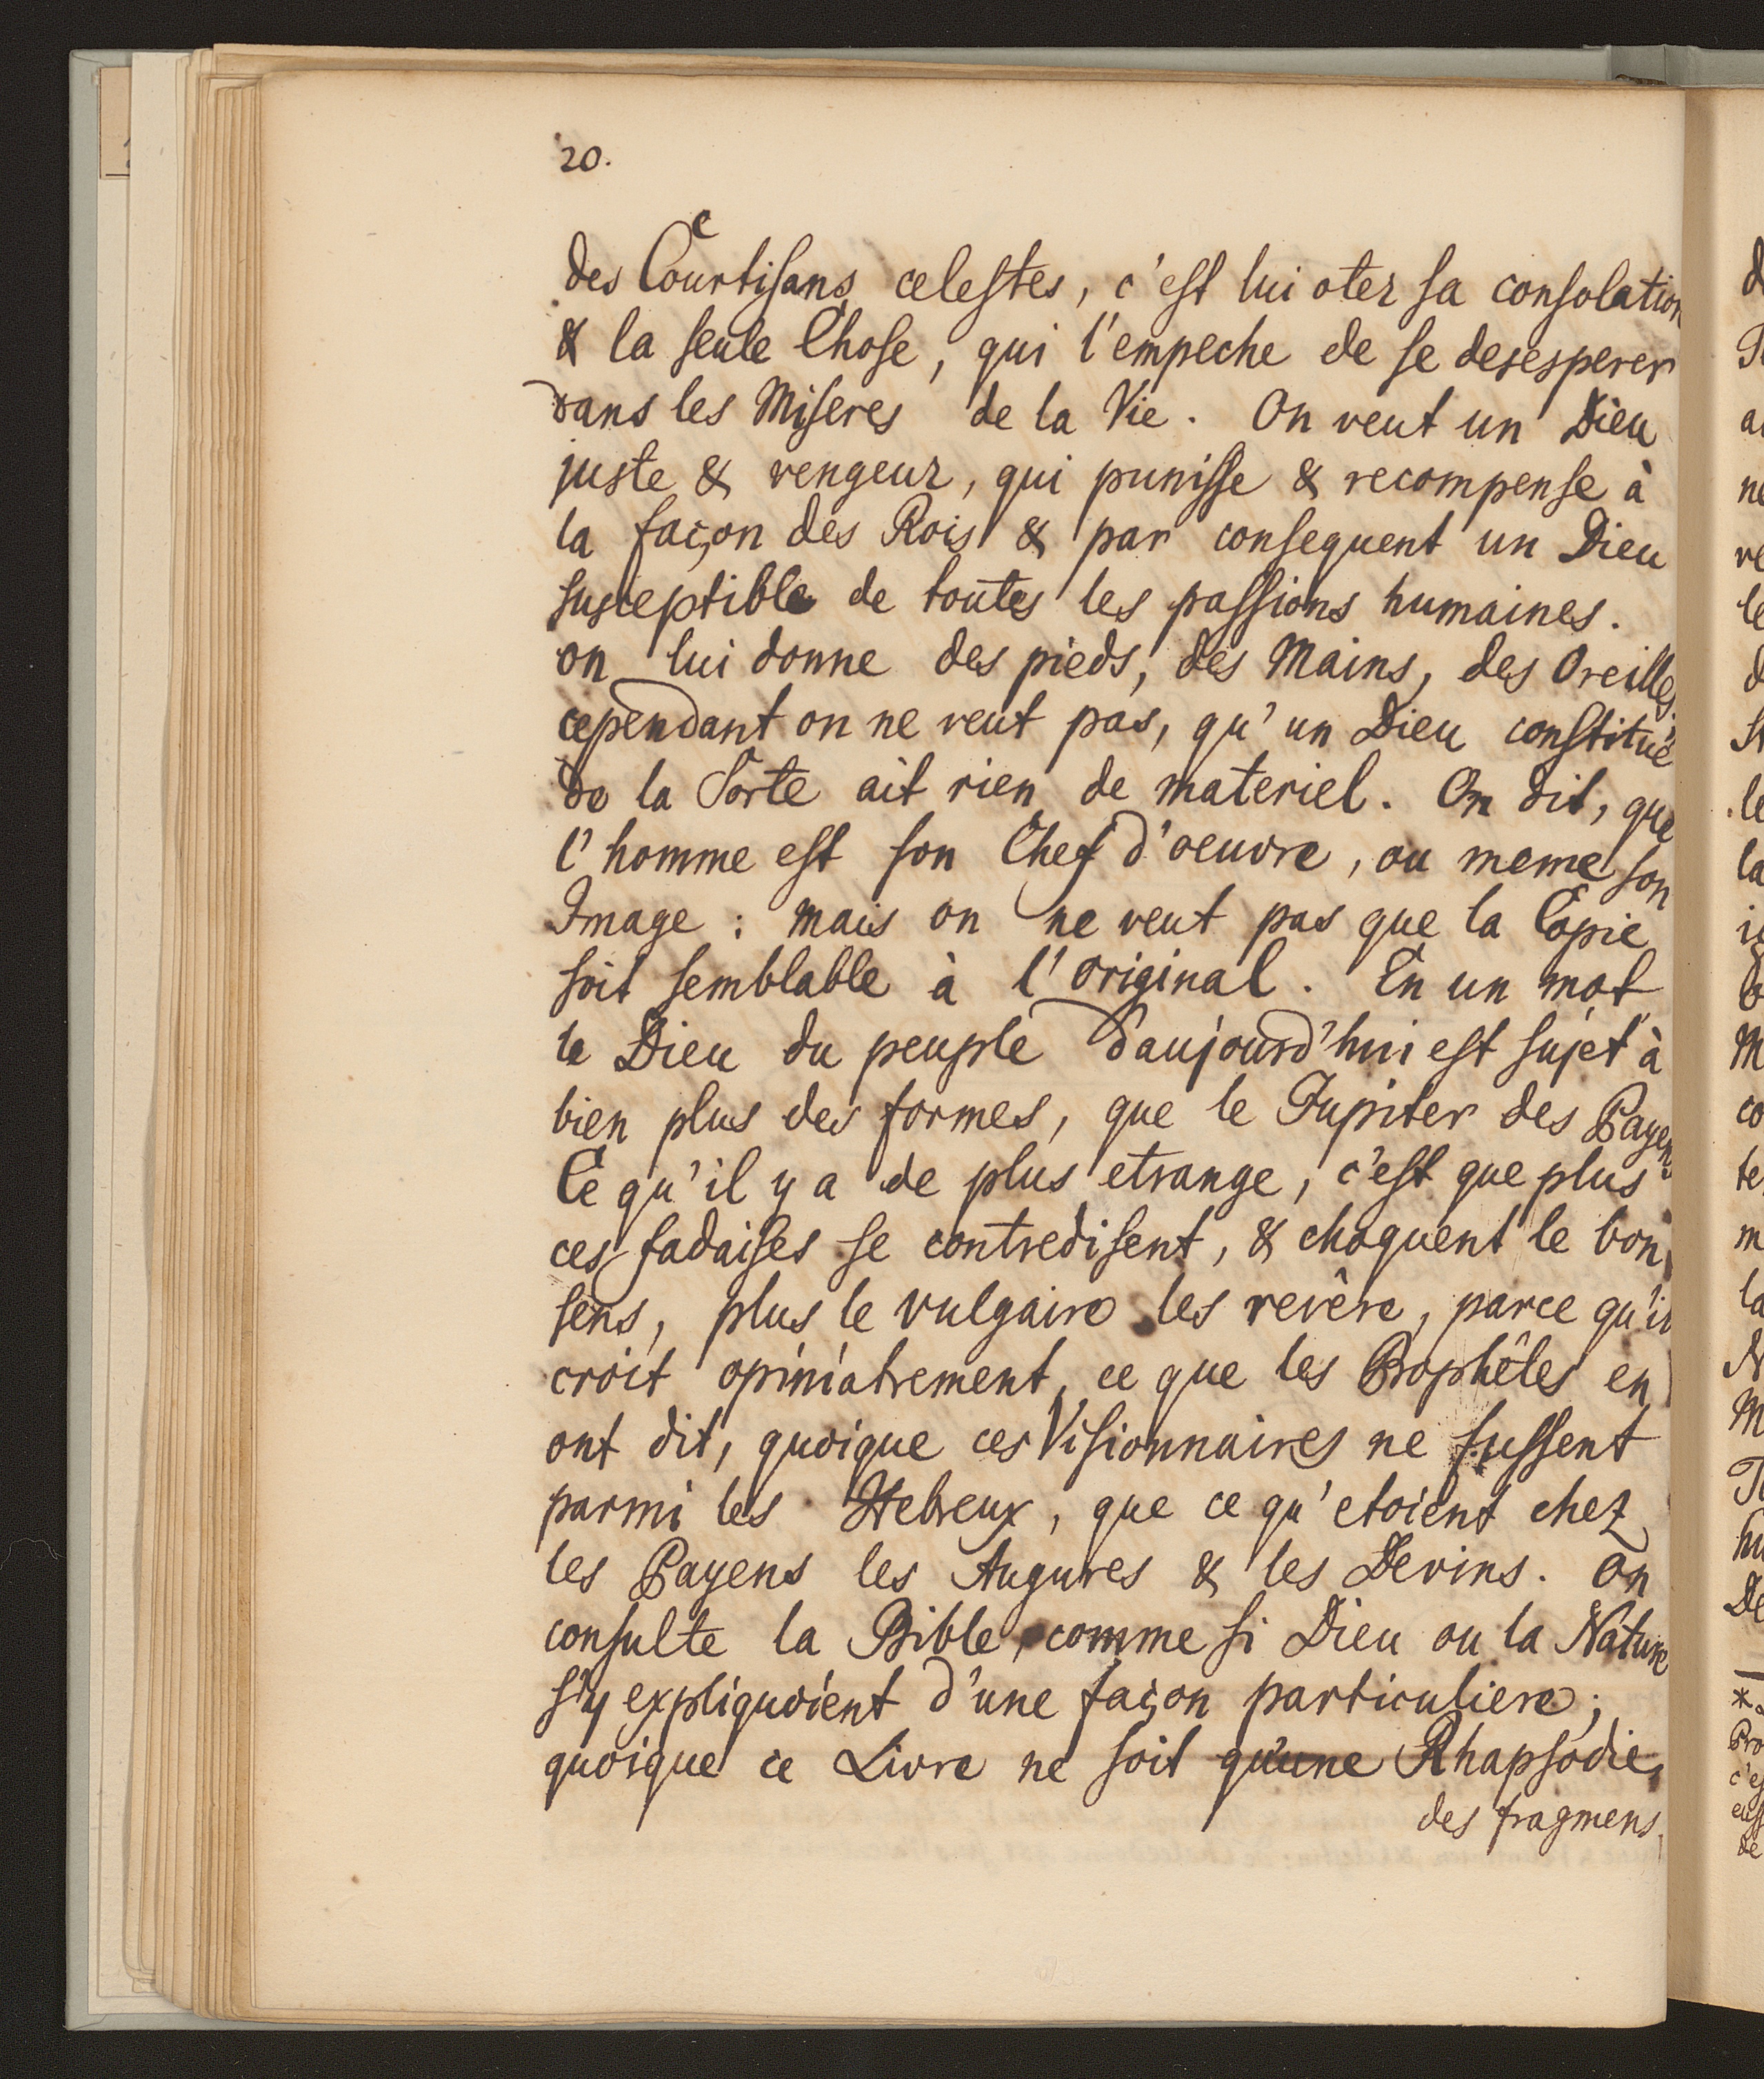 20.
des Courtisans celestes, c'est lui oter sa consolation
& la seule Chose, qui l'empeche de se desesperer
dans les Miseres de la Vie. On veut un Dieu
juste & vengeur, qui punisse & recompense à
la façon des Rois & par consequent un Dieu
susceptible de toutes les passions humaines.
on lui donne des pieds, des Mains, des Oreilles.
cependant on ne veut pas, qu'un Dieu constitué
de la Sorte ait rien de materiel. On dit, que
l'homme est son Chef d'oeuvre, ou meme son
Image : mais on ne veut pas que la Copie
soit semblable à l'original. En un mot
le Dieu du peuple d'aujourd'hui est sujet à
bien plus des formes, que le Jupiter des Payens.
Ce qu'il y a de plus etrange, c'est que plus
ces fadaises se contredisent, & choquent le bon
sens, plus le vulgaire les revêre, parce qu'il
croit opiniatrement, ce que les Prophêtes en
ont dit, quoique ces Visionnaires ne fussent
parmi les Hebreux, que ce qu'etoient chez
les Payens les Augures & les Devins. On
consulte la Bible, comme si Dieu ou la Nature
s'y expliquoient d'une façon particuliere;
quoique ce Livre ne soit qu'une Rhapsodie,
des fragmens